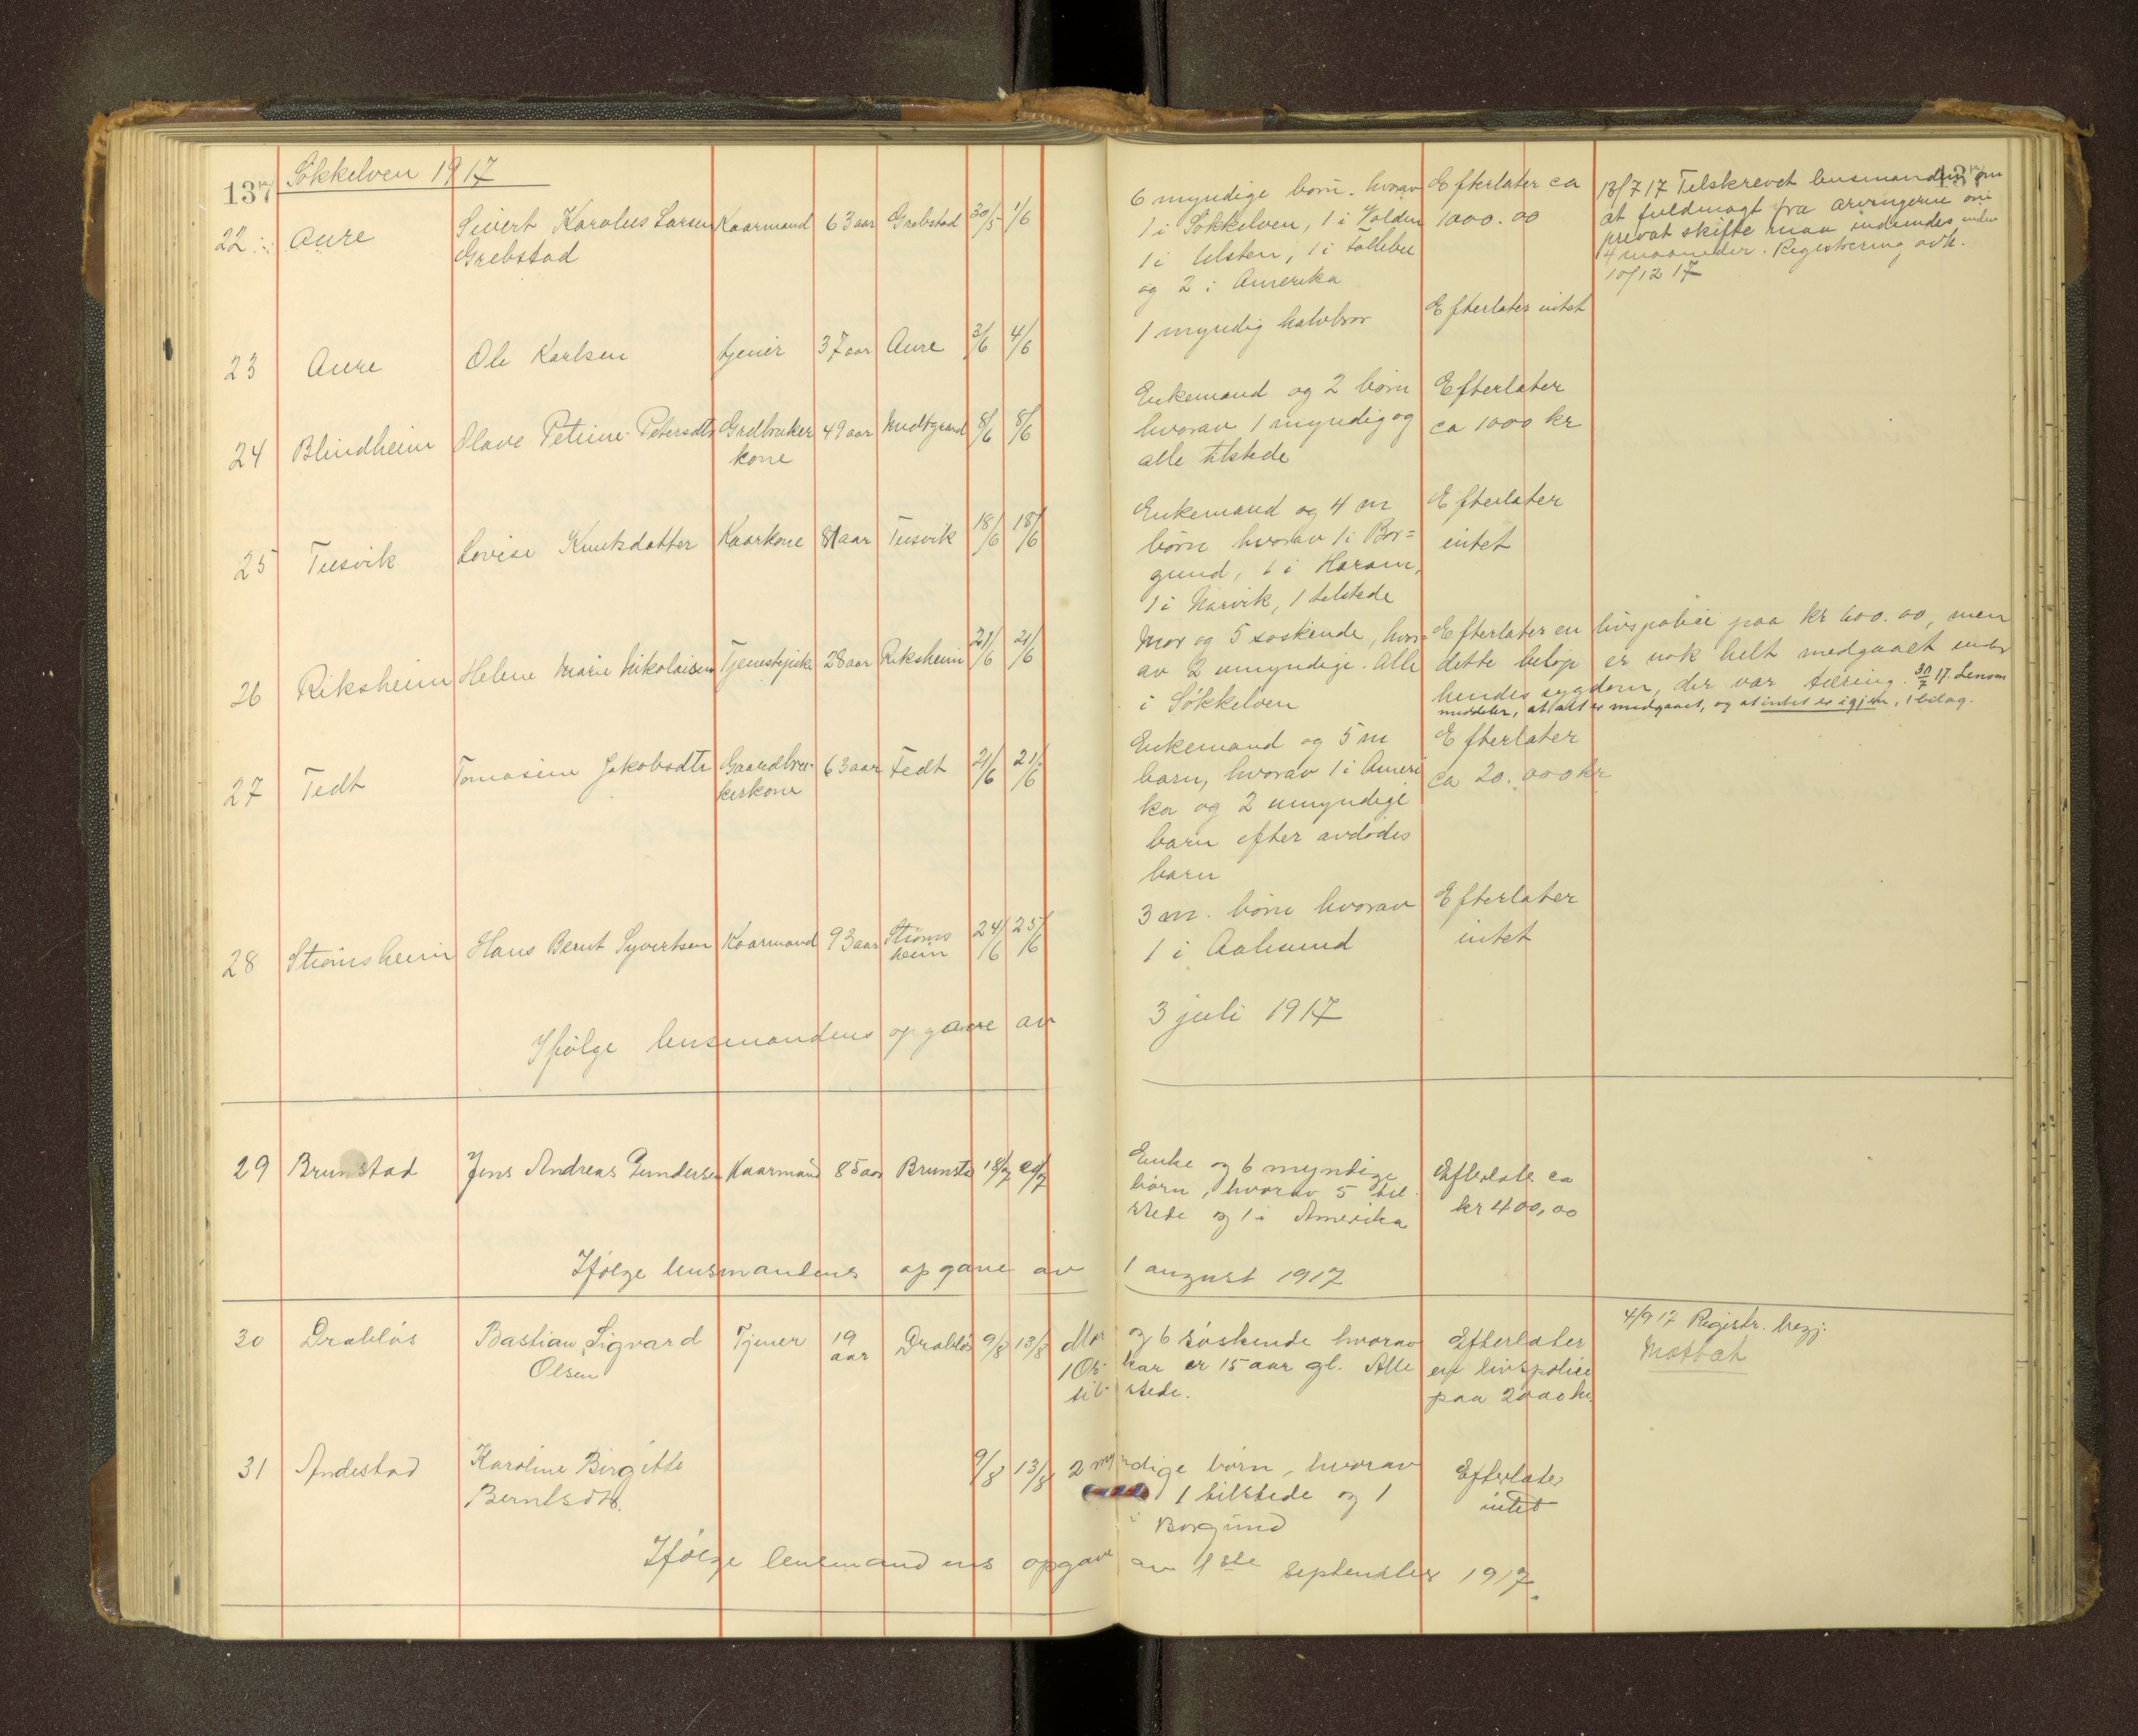 Søkkelven 1917
137
137
22 Aure Sivert Karolus Larsen Kaarmand 63 aar Grebstad 30/5 1/6 6 myndige børn. hvorav Efterlater ca 13/7 17 Tilskrevet lensmanden om
Grebstad 1 i Søkkelven, 1 i Volden 1000.00 at fuldmagt fra arvingerne om
1 i Ulsten, 1 i privat skifte maa indsendes inden
og 2 i Amerika 4 maaneder. Registrering avh.
10/12 17
23 Aure Ole Karlsen tjener 37 aar Aure 3/6 4/6 1 myndig halvbror Efterlater intet
24 Blindheim Olave Petrine Petersdtr Grdbruker 49 aar Midtgaard 8/6 8/6 Enkemand og 2 børn Efterlater
kone hvorav 1 myndig og ca 1000 kr
alle tilstede
25 Tusvik Lovise Knutsdatter Kaarkone 81 aar Tusvik 18/6 18/6 Enkemand og 4 m Efterlater
børn hvorav 1 i Bor= intet
gund, 1 i Haram,
1 i Narvik, 1 tilstede
26 Riksheim Helene Marie Nikolaisen Tjenestepike 28 aar Riksheim 21/6 21/6 Mor og 5 søskende, hvor= Efterlater en livspolice paa kr 600.00, men
av 2 umyndige. Alle dette beløp er nok helt medgaaet under
i Søkkelven hendes sygdom, der var tæring. 30/7 17. Lensm
meddeler, at alt er medgaaet, og at intet er igjen, 1 bilag.
27 Tedt Tomasine Jakobsdtr Gaardbru- 63 aar Fedt 21/6 21/6 Enkemand og 5 m Efterlater
kerkone barn, hvorav 1 i Ameri ca 20.000 kr
ka og 2 umyndige
barn efter avdødes
barn
28 Strømsheim Hans Bernt Syvertsen Kaarmand 93 aar Strøms 24/6 25/6 3 m. børn hvorav Efterlater
heim 1 i Aalesund intet
Ifølge lensmandens opgave av 3 juli 1917
29 Brunstad Jens Andreas Gundersen Kaarmand 85 aar Brunstad 18/7 20/7 Enke og 6 myndige Efterlate ca
børn, hvorav 5 til kr 400,00
stede og 1 i Amerika
Ifølge lensmandens opgave av 1 august 1917
30 Drabløs Bastian Sigvard Tjener 19 Drabløs 9/8 13/8 Mor og 6 søskende hvorav Efterlater 4/9 17 Registr. begj.
Olsen aar kar er 15 aar gl. Alle en livspolice
til stede. paa 2000 kr.
31 Andestad Karoline Birgitte 9/8 13/8 2 myndige børn, hvorav Efterlater
Berntsdtr. 1 tilstede og 1 intet
i Borgund
Ifølge lensmandens opgave av 1ste september 1917.